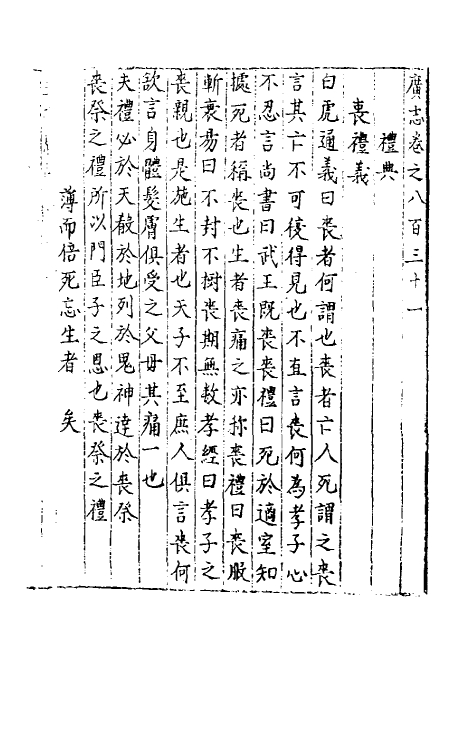 廣志卷之八百三十一
禮典
喪禮義
白虎通義曰喪者何謂也喪者亡人死謂之喪
言其亡不可復得見也不直言喪何為孝子心
不忍言尚書曰武王既喪喪禮曰死於適室知
據死者稱喪也生者喪痛之亦称喪禮曰喪服
斬衰易曰不封不樹喪期無数孝經曰孝子之
喪親也是施生者也天子下至庶人俱言喪何
欲言身體髮膚俱受之父母其痛一也
夫禮必於天殽於地列於鬼神達於喪祭
喪祭之禮所以門臣子之恩也喪祭之禮
薄而倍死忘生者 矣